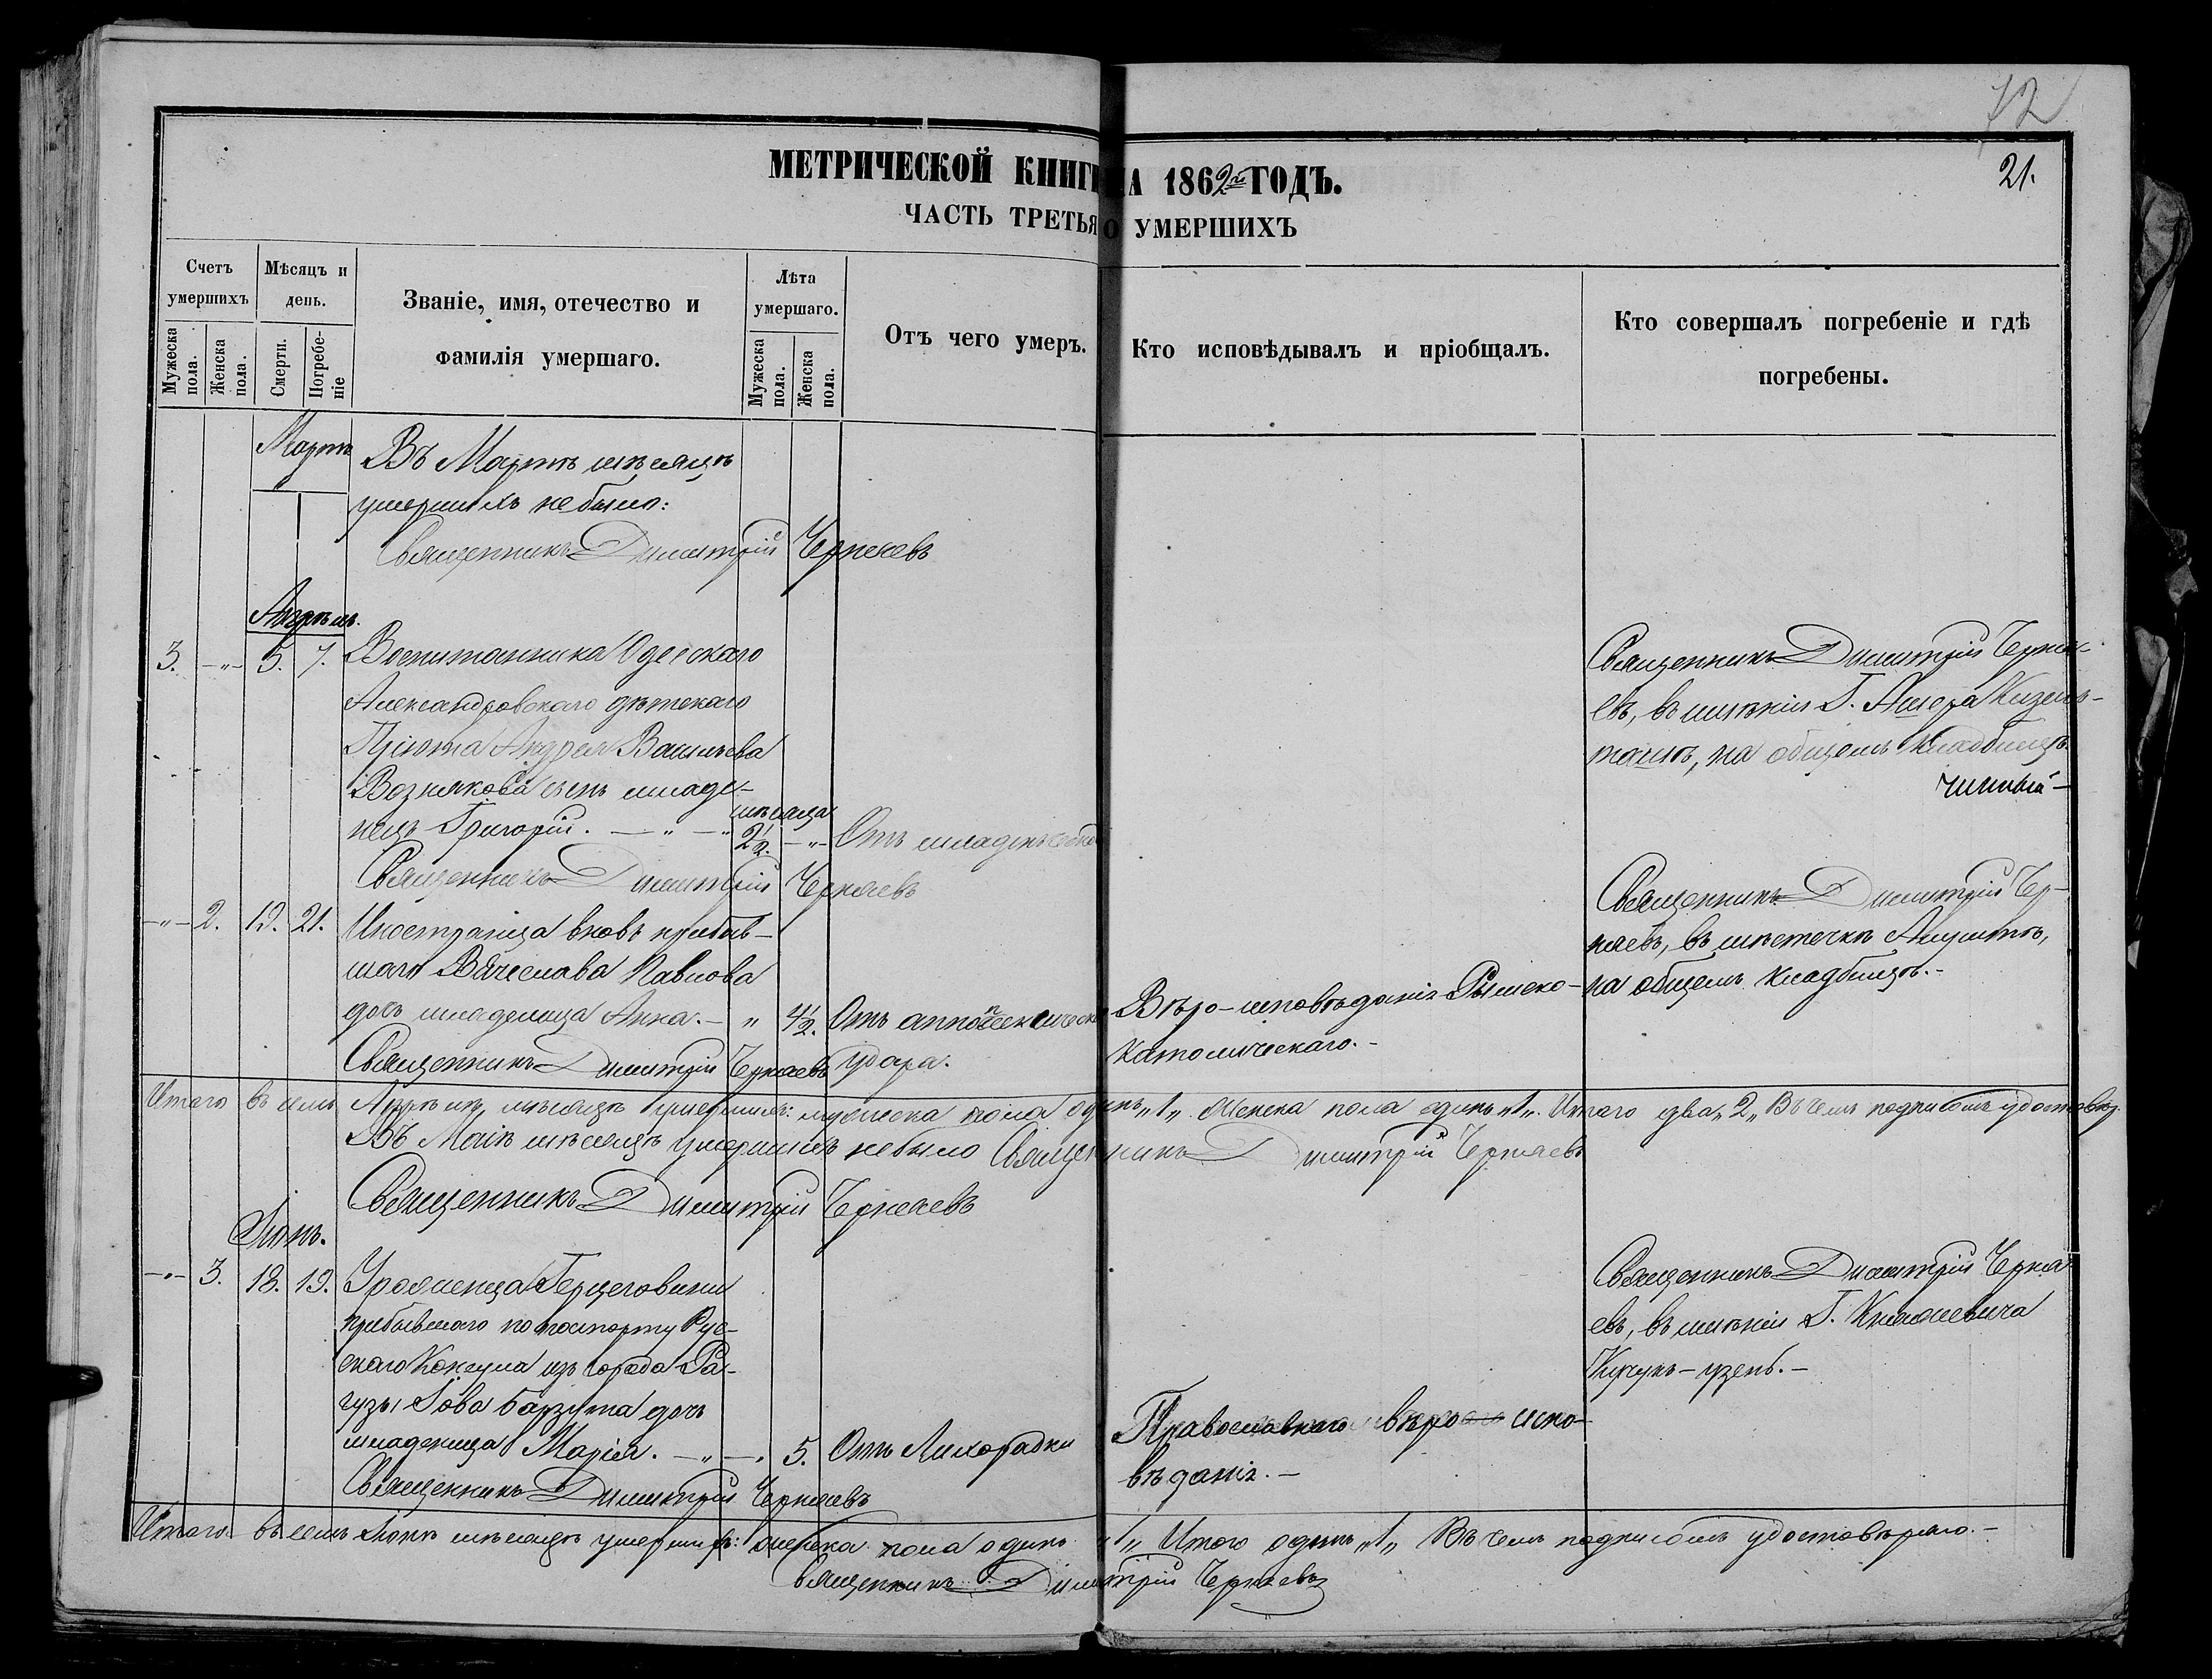 72
21.
МЕТРИЧЕСКОЙ КНИГИ НА 1862й ГОДЪ.
ЧАСТЬ ТРЕТЬЯ О УМЕРШИХЪ
Счетъ умершихъ
Мужеска пола.
Женска пола.
Мѣсяцъ и день.
Смерти.
Погребе-ніе
Званіе, имя, отечество и
фамилія умершаго.
Лѣта умершаго.
Мужеска пола.
Женска пола.
Отъ чего умеръ.
Кто исповѣдывалъ и пріобщалъ.
Кто совершалъ погребеніе и гдѣ
погребены.
Мартъ
Въ Мартѣ мѣсяцѣ
умершихъ не было:
Священникъ Димитрій Черняевъ
Апрѣль.
3. -"- 5. 7. Воспитанника Одесскаго
Александровскаго дѣтскаго
Пріюта Андрея Васильева
Вознякова сынъ младе-
нецъ Григорій. — " — "
мѣсяца
2½. -"- Отъ младенческой
Священникъ Димитрій Черня-
евъ, въ имѣніи Г. Ашера Кизель-
ташѣ, на общемъ кладбищѣ.
Священникъ Димитрій Черняевъ
-"- 2. 19. 21. Иностранца вновь прибыв-
шаго Вячеслава Павлова
дочь младенца Анна. — " 4½. Отъ апоплексическ
удара.
Вѣро-исповѣданія Римско-
Католическаго.-
Священникъ Димитрій Чер-
няевъ, въ мѣстечкѣ Алуштѣ,
на общемъ кладбищѣ.-
Священникъ Димитрій Черняевъ
Итого въ семъ Апрѣлѣ мѣсяцѣ умершихъ: мужеска пола одинъ „1„ Женска пола одинъ „1„. Итого два „2„ Въ чемъ подписомъ удостовѣр.
Священникъ Димитрій Черняевъ
Въ Маіѣ мѣсяцѣ умершихъ небыло
Священникъ Димитрій Черняевъ
Іюнь.
-"- 3. 18. 19. Уроженца Герцеговины
прибывшаго по поспорту Рус-
скаго Консула изъ города Ра-
гузы Іова барзута дочь
младенца Марія. — " — . 5. Отъ Лихорадки
Православнаго вѣро испо-
вѣданія.—
Священникъ Димитрій Черня-
евъ, въ имѣніи Г. Княжевича
Кучукъ-узенъ.—
Священникъ Димитрій Черняевъ
Итого въ семъ Іюнѣ мѣсяцѣ умершихъ: женска пола одинъ „1„ Итого одинъ „1„ Въ чемъ подписомъ удостовѣряю.—
Священникъ Димитрій Черняевъ